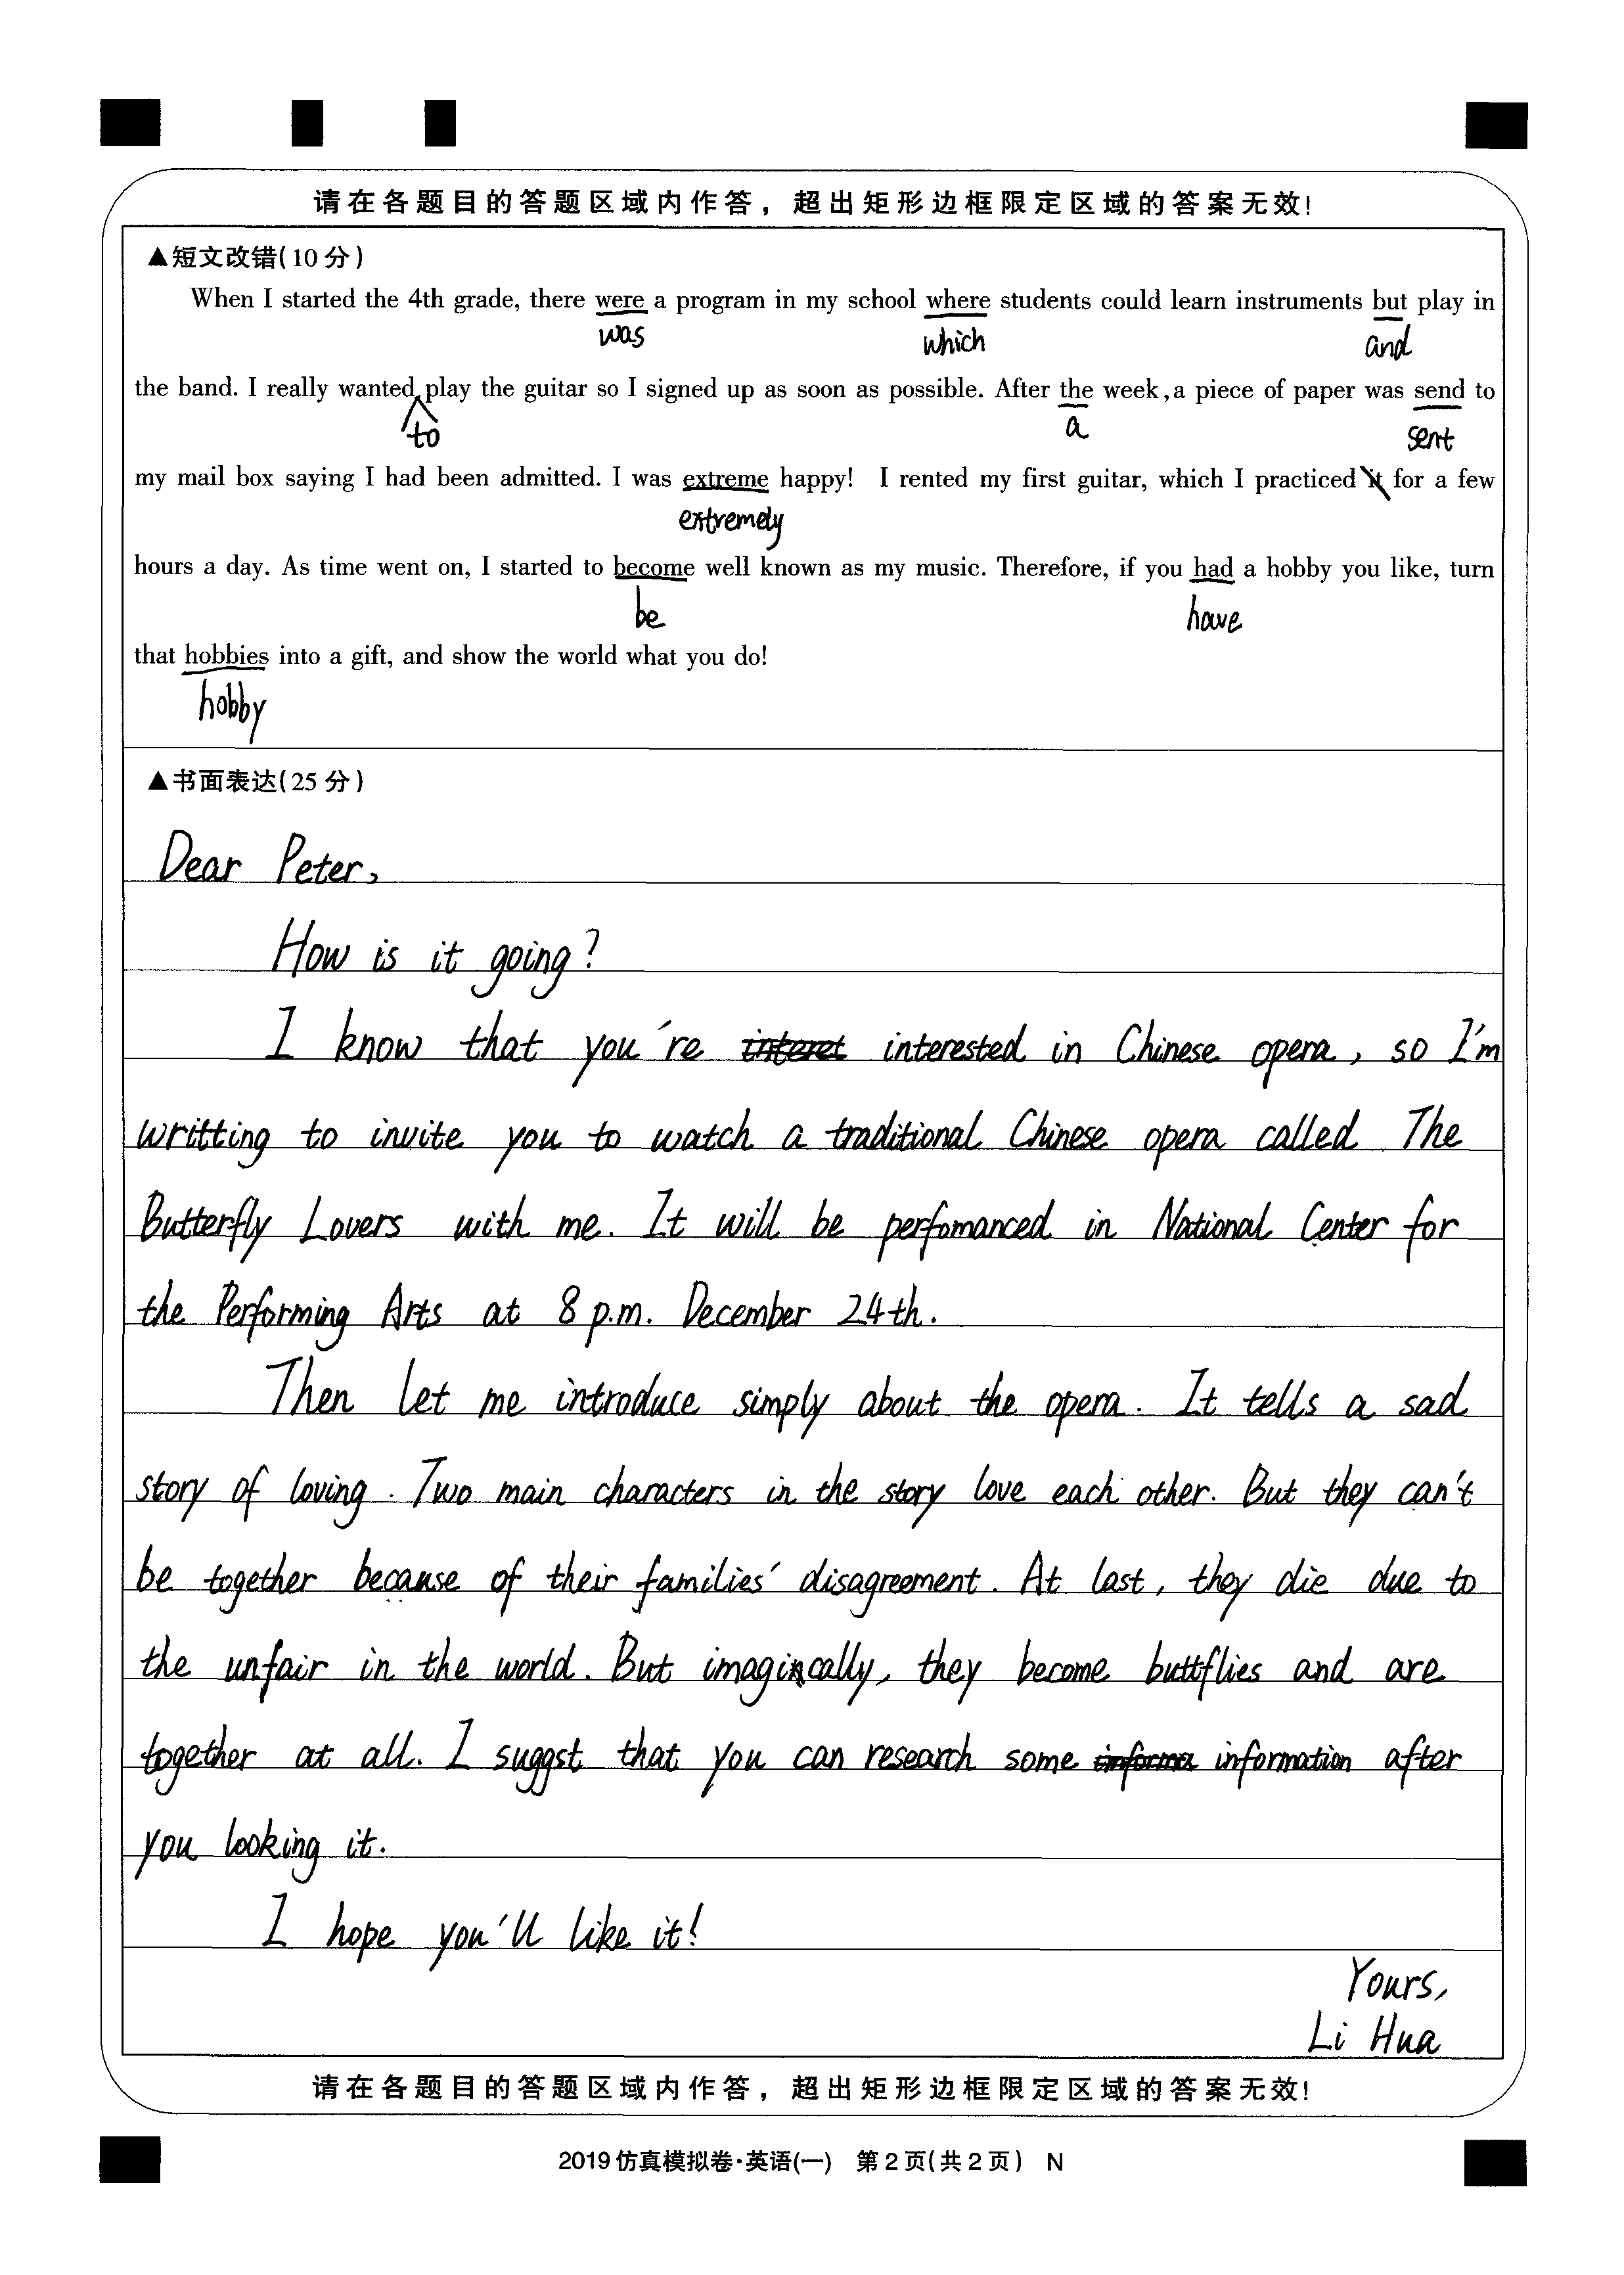 请在各题目的答题区域内作答，超出矩形边框限定区域的答案无效！
▲短文改错(10分)
When I started the 4th grade, there were a program in my school where students could learn instruments but play in
was which and
the band. I really wanted play the guitar so I signed up as soon as possible. After the week, a piece of paper was send to
to a sent
my mail box saying I had been admitted. I was extreme happy! I rented my first guitar, which I practiced it for a few
extremely
hours a day. As time went on, I started to become well known as my music. Therefore, if you had a hobby you like, turn
be have
that hobbies into a gift, and show the world what you do!
hobby
▲书面表达(25分)
Dear Peter,
How is it going?
I know that you're interet interested in Chinese opera, so I'm
writting to invite you to watch a traditional Chinese opera called The
Butterfly Lovers with me. It will be perfomanced in National Center for
the Performing Arts at 8 p.m. December 24th.
Then let me introduce simply about the opera. It tells a sad
story of loving. Two main characters in the story love each other. But they can't
be together because of their families' disagreement. At last, they die due to
the unfair in the world. But imagincally, they become buttflies and are
together at all. I suggst that you can research some informa information after
you looking it.
I hope you'll like it!
Yours,
Li Hua
请在各题目的答题区域内作答，超出矩形边框限定区域的答案无效！
2019仿真模拟卷·英语(一) 第2页(共2页) N